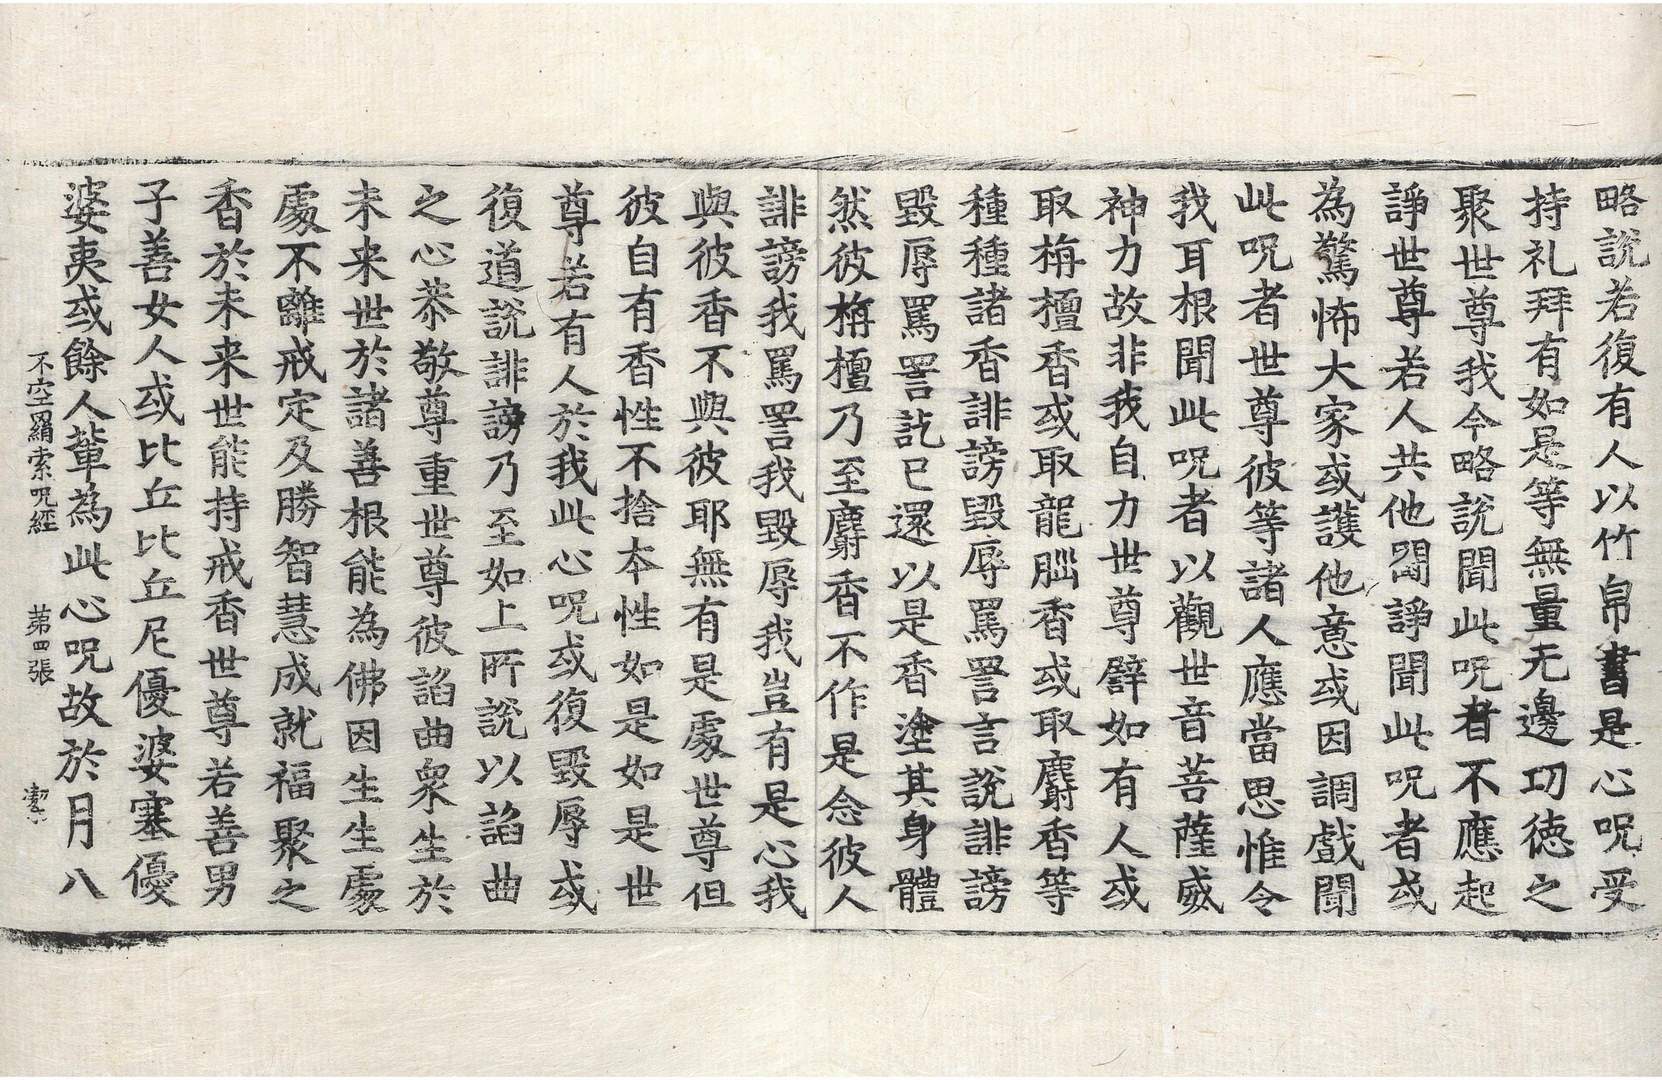 略說若復有人以竹帛書是心呪受
持礼拜有如是等無量无邊切徳之
聚世尊我今略說聞此呪者不應起
諍世尊若人共他鬪諍聞此呪者或
為驚怖大家或護他意或因調戲聞
此呪者世尊彼等諸人應當思惟令
我耳根聞此呪者以觀世音菩薩威
神力故非我自力世尊譬如有人或
取栴檀香或取龍腦香或取麝香等
種種諸香誹謗毀辱罵詈言說誹謗
毀辱罵詈訖已還以是香塗其身體
然彼栴檀乃至麝香不作是念彼人
誹謗我罵詈我毀辱我豈有是心我
與彼香不與彼耶無有是處世尊但
彼自有香性不捨本性如是如是世
尊若有人於我此心呪或復毀辱或
復道說誹謗乃至如上所說以諂曲
之心恭敬尊重世尊彼諂曲衆生於
未来世於諸善根能為佛因生生處
處不離戒定及勝智慧成就福聚之
香於未来世能持戒香世尊若善男
子善女人或比丘比丘尼優婆塞優
婆夷或餘人輩為此心呪故於月八
不空羂索呪經 第四張